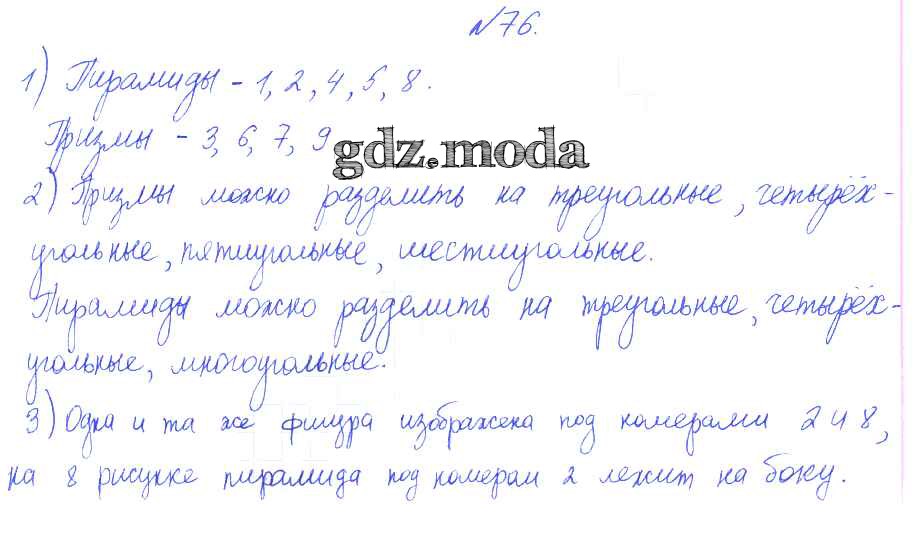 №76.
1) Пирамиды - 1, 2, 4, 5, 8.
Призмы - 3, 6, 7, 9
gdz.moda
2) Призмы можно разделить на треугольные, четырёх-
угольные, пятиугольные, шестиугольные.
Пирамиды можно разделить на треугольные, четырёх-
угольные, многоугольные.
3) Одна и та же фигура изображена под номерами 2 и 8,
на 8 рисунке пирамида под номерам 2 лежит на боку.